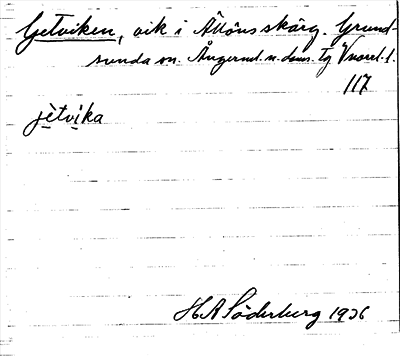 Getviken, vik i Ällöns skärg. Grund-
sunda sn. Ångerml. n. doms. tg Vnorrl. l.
117
jètvika
H A Söderberg 1936